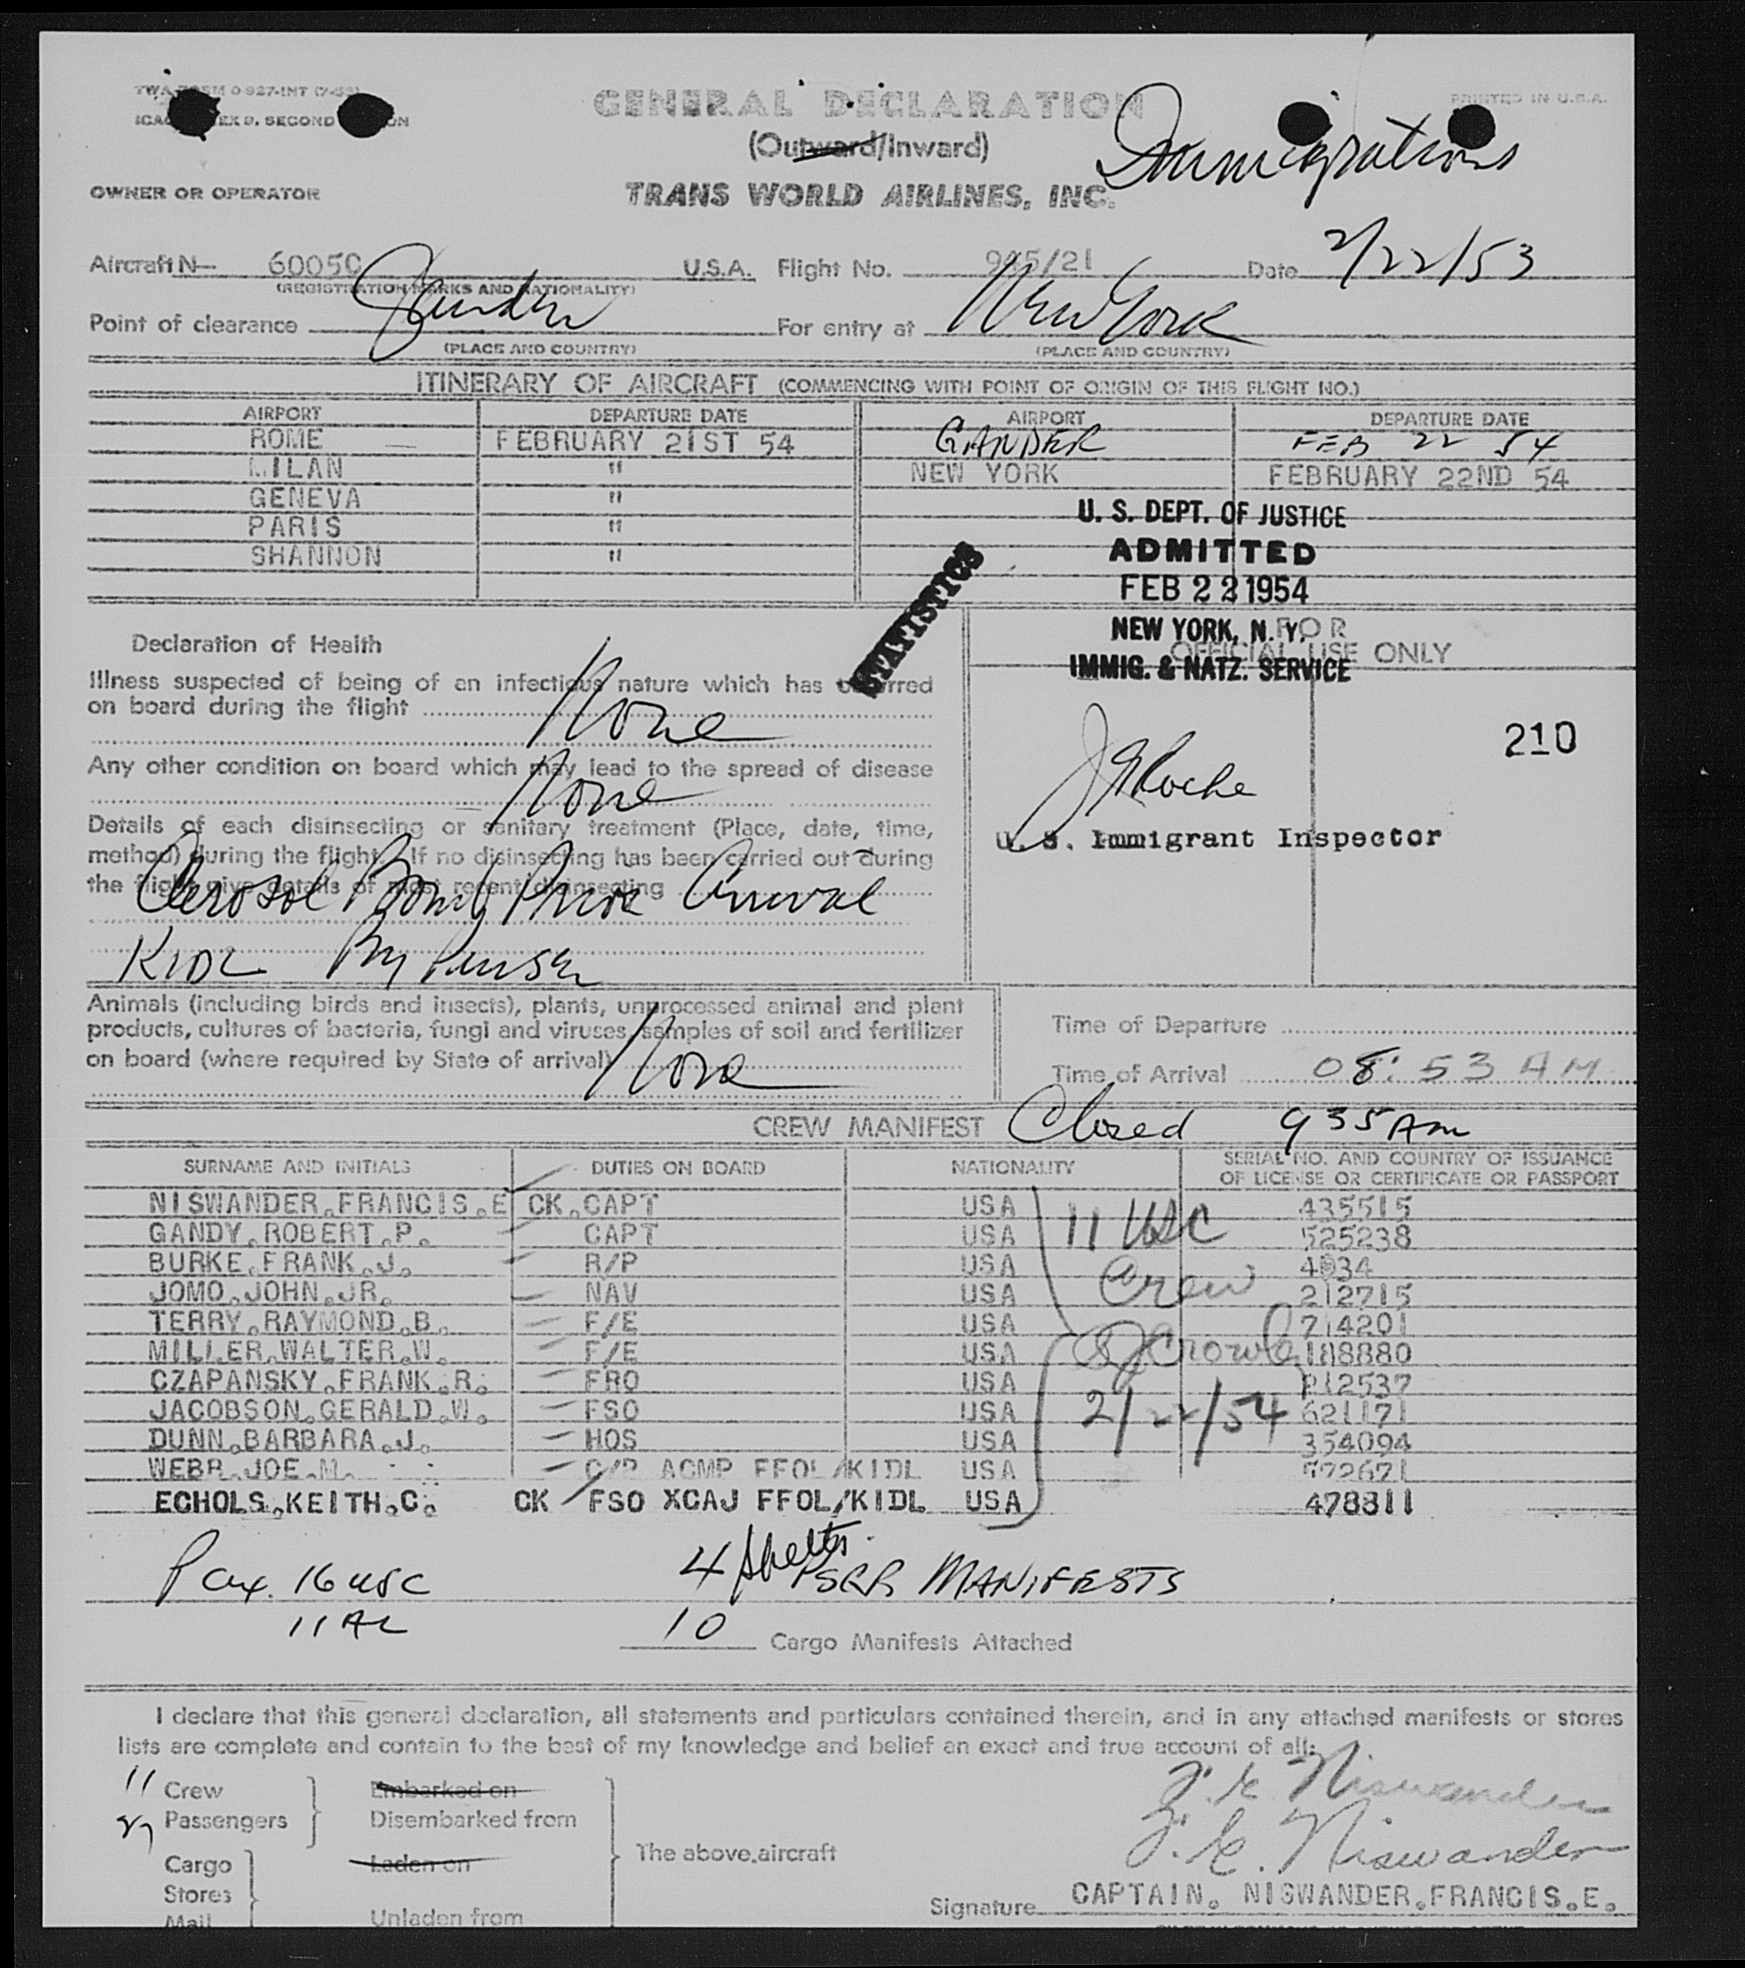 TWA FORM 0-927-INT (7-53)
PRINTED IN U.S.A.
GENERAL DECLARATION
(Outward/Inward)
Immigrations
OWNER OR OPERATOR
TRANS WORLD AIRLINES, INC.
Aircraft N— 6005C U.S.A. Flight No. 945/21 Date 2/22/53
(REGISTRATION MARKS AND NATIONALITY)
Point of clearance Gander For entry at New York
(PLACE AND COUNTRY) (PLACE AND COUNTRY)
ITINERARY OF AIRCRAFT (COMMENCING WITH POINT OF ORIGIN OF THIS FLIGHT NO.)
AIRPORT DEPARTURE DATE AIRPORT DEPARTURE DATE
ROME FEBRUARY 21ST 54 GANDER FEB 22 54
MILAN " NEW YORK FEBRUARY 22ND 54
GENEVA "
PARIS "
SHANNON "
U. S. DEPT. OF JUSTICE
ADMITTED
FEB 22 1954
NEW YORK, N. Y.
IMMIG. & NATZ. SERVICE
STATISTICS
FOR
OFFICIAL USE ONLY
Declaration of Health
Illness suspected of being of an infectious nature which has occurred
on board during the flight None
210
Any other condition on board which may lead to the spread of disease
None
J Roche
U. S. Immigrant Inspector
Details of each disinsecting or sanitary treatment (Place, date, time,
method) during the flight. If no disinsecting has been carried out during
the flight give details of most recent disinsecting
Aerosol Bomb Prior Arrival
KIDL By Purser
Animals (including birds and insects), plants, unprocessed animal and plant
products, cultures of bacteria, fungi and viruses, samples of soil and fertilizer
on board (where required by State of arrival) None
Time of Departure
Time of Arrival 08:53 AM
CREW MANIFEST Closed 935 Am
SURNAME AND INITIALS DUTIES ON BOARD NATIONALITY SERIAL NO. AND COUNTRY OF ISSUANCE
OF LICENSE OR CERTIFICATE OR PASSPORT
NISWANDER.FRANCIS.E CK.CAPT USA 435515
GANDY.ROBERT.P. CAPT USA 525238
BURKE.FRANK.J. R/P USA 4934
JOMO.JOHN.JR. NAV USA 212715
TERRY.RAYMOND.B. F/E USA 714201
MILLER.WALTER.W. F/E USA 188880
CZAPANSKY.FRANK.R. FRO USA 212537
JACOBSON.GERALD.W. FSO USA 621171
DUNN.BARBARA.J. HOS USA 354094
WEBB.JOE.M. C/P ACMP FFOL/KIDL USA 772671
ECHOLS.KEITH.C. CK FSO XCAJ FFOL/KIDL USA 478811
11 USC
Crew
2/22/54
Pax. 16 USC 4 sheets PSGR MANIFESTS
11 AL
10 Cargo Manifests Attached
I declare that this general declaration, all statements and particulars contained therein, and in any attached manifests or stores
lists are complete and contain to the best of my knowledge and belief an exact and true account of all:
11 Crew Embarked on
27 Passengers Disembarked from
The above aircraft
Cargo Laden on
Stores
Mail Unladen from
F. E. Niswander
F. E. Niswander
Signature CAPTAIN. NISWANDER.FRANCIS.E.